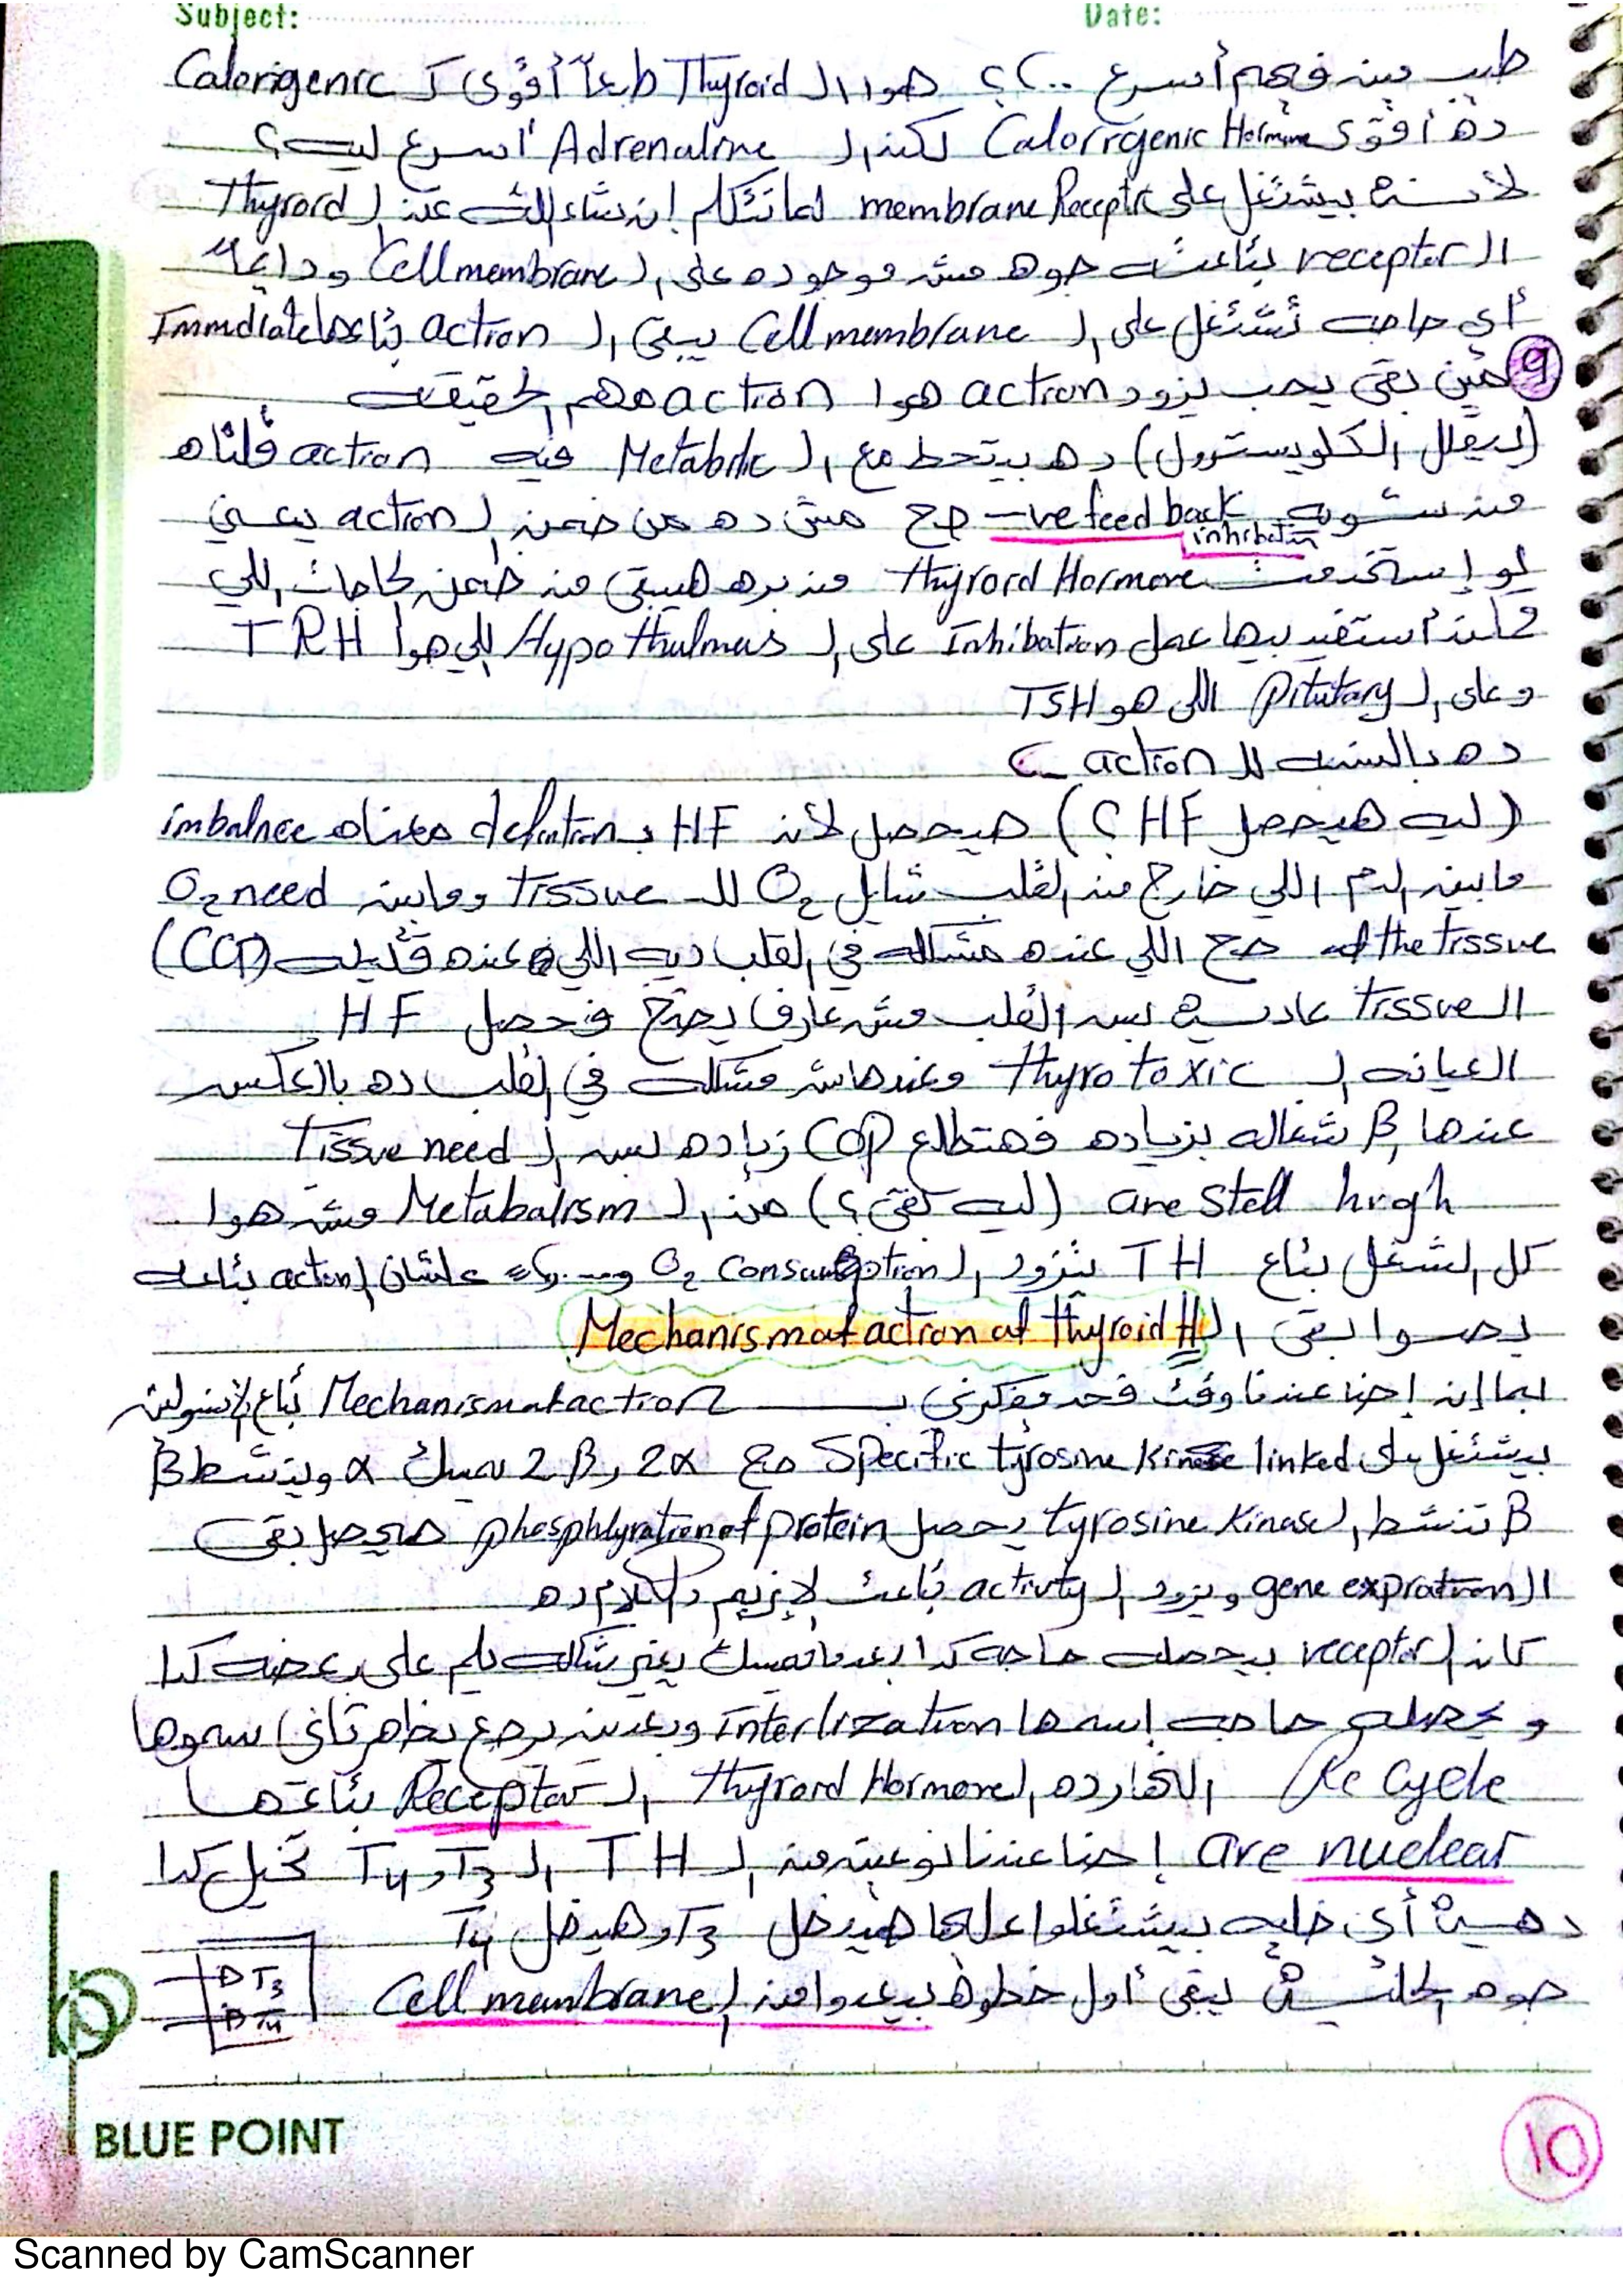 Subject: Date:
طيب مين فيهم أسرع ..؟؟ هوا ال Thyroid طبعاً أقوى ك Calorigenic
ده أقوى Calorrgenic Hormone لكن ال Adrenaline أسرع ليه؟
لأنه بيشتغل على membrane Receptr لما نتكلم إن شاء الله عن ال Thyrord
ال receptor بتاعته جوه مش موجوده على ال Cell membrane ودايماً
أي حاجه تشتغل على ال Cell membrane يبقى ال action بتاعها Immdiate
9 مين بقى يحب يزود action هوا action مهم الحقيقه
(ليقلل الكلويسترول) ده بيتحط مع ال Metabolic فيه action قلناه
من شويه -ve feed back صح مش ده من ضمن ال action يعني
inhibatin
لو إستخدمت Thyrord Hormone من بره هيبقى من ضمن الحاجات اللي
ممكن أستفيد بيها عمل Inhibation على ال Hypothulmas اللي هوا TRH
وعلى ال Pitutary اللي هو TSH
ده بالنسبه لل action
(ليه هيحصل HF ؟) هيحصل لأن HF ب defention معناه imbalnce
مابين الدم اللي خارج من القلب شايل O₂ لل Tissue ومابين O₂ need
of the tissue صح اللي عنده مشكله في القلب ديه اللي عنده قليله (COP)
ال tissue عاديه بس القلب مش عارف يضخ فحصل HF
العيانه ال thyrotoxic معندهاش مشكله في القلب ده بالعكس
عندها β₁ شغاله بزياده فهتطلع COP زياده بس ال Tissue need
are still high (ليه بقى؟) من ال Metabalism مش هوا
كل الشغل بتاع TH بتزود ال O₂ Consumption علشان ال action بتاعه
بصوا بقى ال Mechanism of action of thyroid H
بما إن إحنا عندنا وقت فحد يفكرني ب Mechanism of action بتاع الإنسولين
بيشتغل على Specific tyrosine kinase linked صح 2α و 2β يمسك α وينشط β
β تنشط ال tyrosine kinase يحصل phosphlyration of protein هيحصل بقى
ال gene expration ويزود ال activty بتاعت الإنزيم دا الكلام ده
كان ال receptor بيحصله حاجه كدا بعد ما تمسك يغير شكله يلم على بعضه كدا
ويحصله حاجه إسمها interlization وبعدين يرجع يظهر تاني سموها
Re Cycle النهارده ال Thyrord Hormone ال Receptor بتاعتها
are nuclear إحنا عندنا نوعين من ال TH ال T₃ و T₄ تخيل كدا
ده أي خليه بيشتغلوا عليها هيدخل T₃ وهيدخل T₄
جوه الخليه يبقى أول خطوه بيعدوا من ال Cell membrane
T₃
T₄
BLUE POINT
10
Scanned by CamScanner